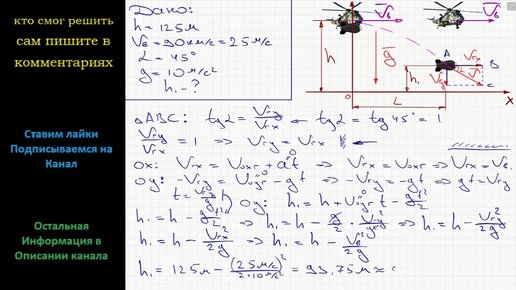 кто смог решить
сам пишите в
комментариях
Ставим лайки
Подписываемся на
Канал
Остальная
Информация в
Описании канала
Дано:
h = 125м
Vв = 90км/с = 25м/с
α = 45°
g = 10м/с²
h₁ - ?
Vв
Vв
h
g
A
Vгx
B
Vгy
Vг
C
h₁
0
L
X
ΔABC: tgα = Vгy/Vгx ; tgα = tg45° = 1
Vгy/Vгx = 1 ⇒ Vгy = Vгx
ox: Vгx = Voxг + at ⇒ Vгx = Voxг ⇒ Vгx = Vв
oy: -Vгy = Voyг - gt ⇒ -Vгy = -gt ⇒ gt = Vгy
t = Vгy/g ; oy: h₁ = h + Voyг t - gt²/2
h₁ = h - gt²/2 ⇒ h₁ = h - g/2 · Vгy²/g² ⇒ h₁ = h - Vгy²/2g
h₁ = h - Vгx²/2g ⇒ h₁ = h - Vв²/2g
h₁ = 125м - (25м/с)²/2·10м/с² = 93,75м